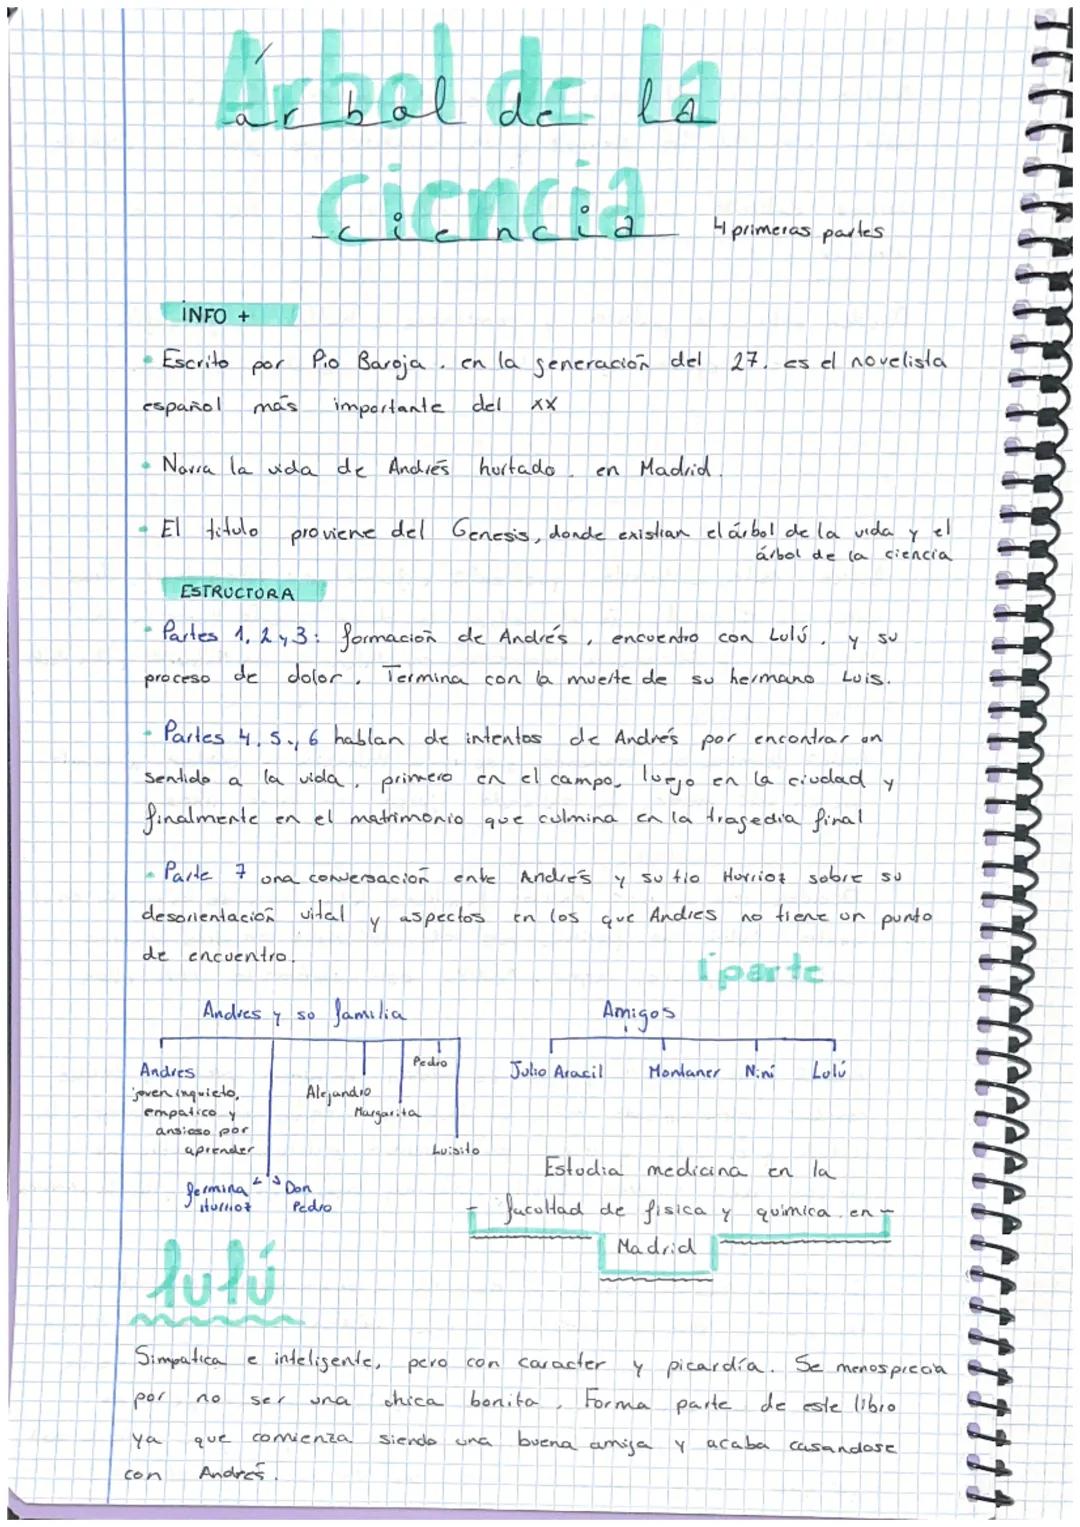 Árbol de la
árbol de la
ciencia
ciencia
4 primeras partes
INFO +
• Escrito por Pio Baroja. en la generación del 27. es el novelista
español más importante del XX
• Narra la vida de Andrés hurtado. en Madrid.
• El titulo proviene del Genesis, donde existian el árbol de la vida y el
árbol de la ciencia
ESTRUCTORA
• Partes 1, 2 y 3: formación de Andrés, encuentro con Lulú, y su
proceso de dolor. Termina con la muerte de su hermano Luis.
• Partes 4, 5, y 6 hablan de intentos de Andrés por encontrar un
sentido a la vida, primero en el campo, luego en la ciudad y
finalmente en el matrimonio que culmina en la tragedia final
• Parte 7 una conversación ente Andrés y su tio Hurrioz sobre su
desorientación vital y aspectos en los que Andres no tiene un punto
de encuentro.
1 parte
Andres y so familia
Amigos
Andres
joven inquieto,
empatico y
ansioso por
aprender
fermina
iturrioz
Don
Pedro
Alejandro
Margarita
Pedro
Luisito
Julio Aracil Montaner Niní Lulú
Estudia medicina en la
facultad de fisica y quimica en
Madrid
lulú
Simpatica e inteligente, pero con caracter y picardía. Se menosprecia
por no ser una chica bonita. Forma parte de este libro
ya que comienza siendo una buena amiga y acaba casandose
con Andrés.